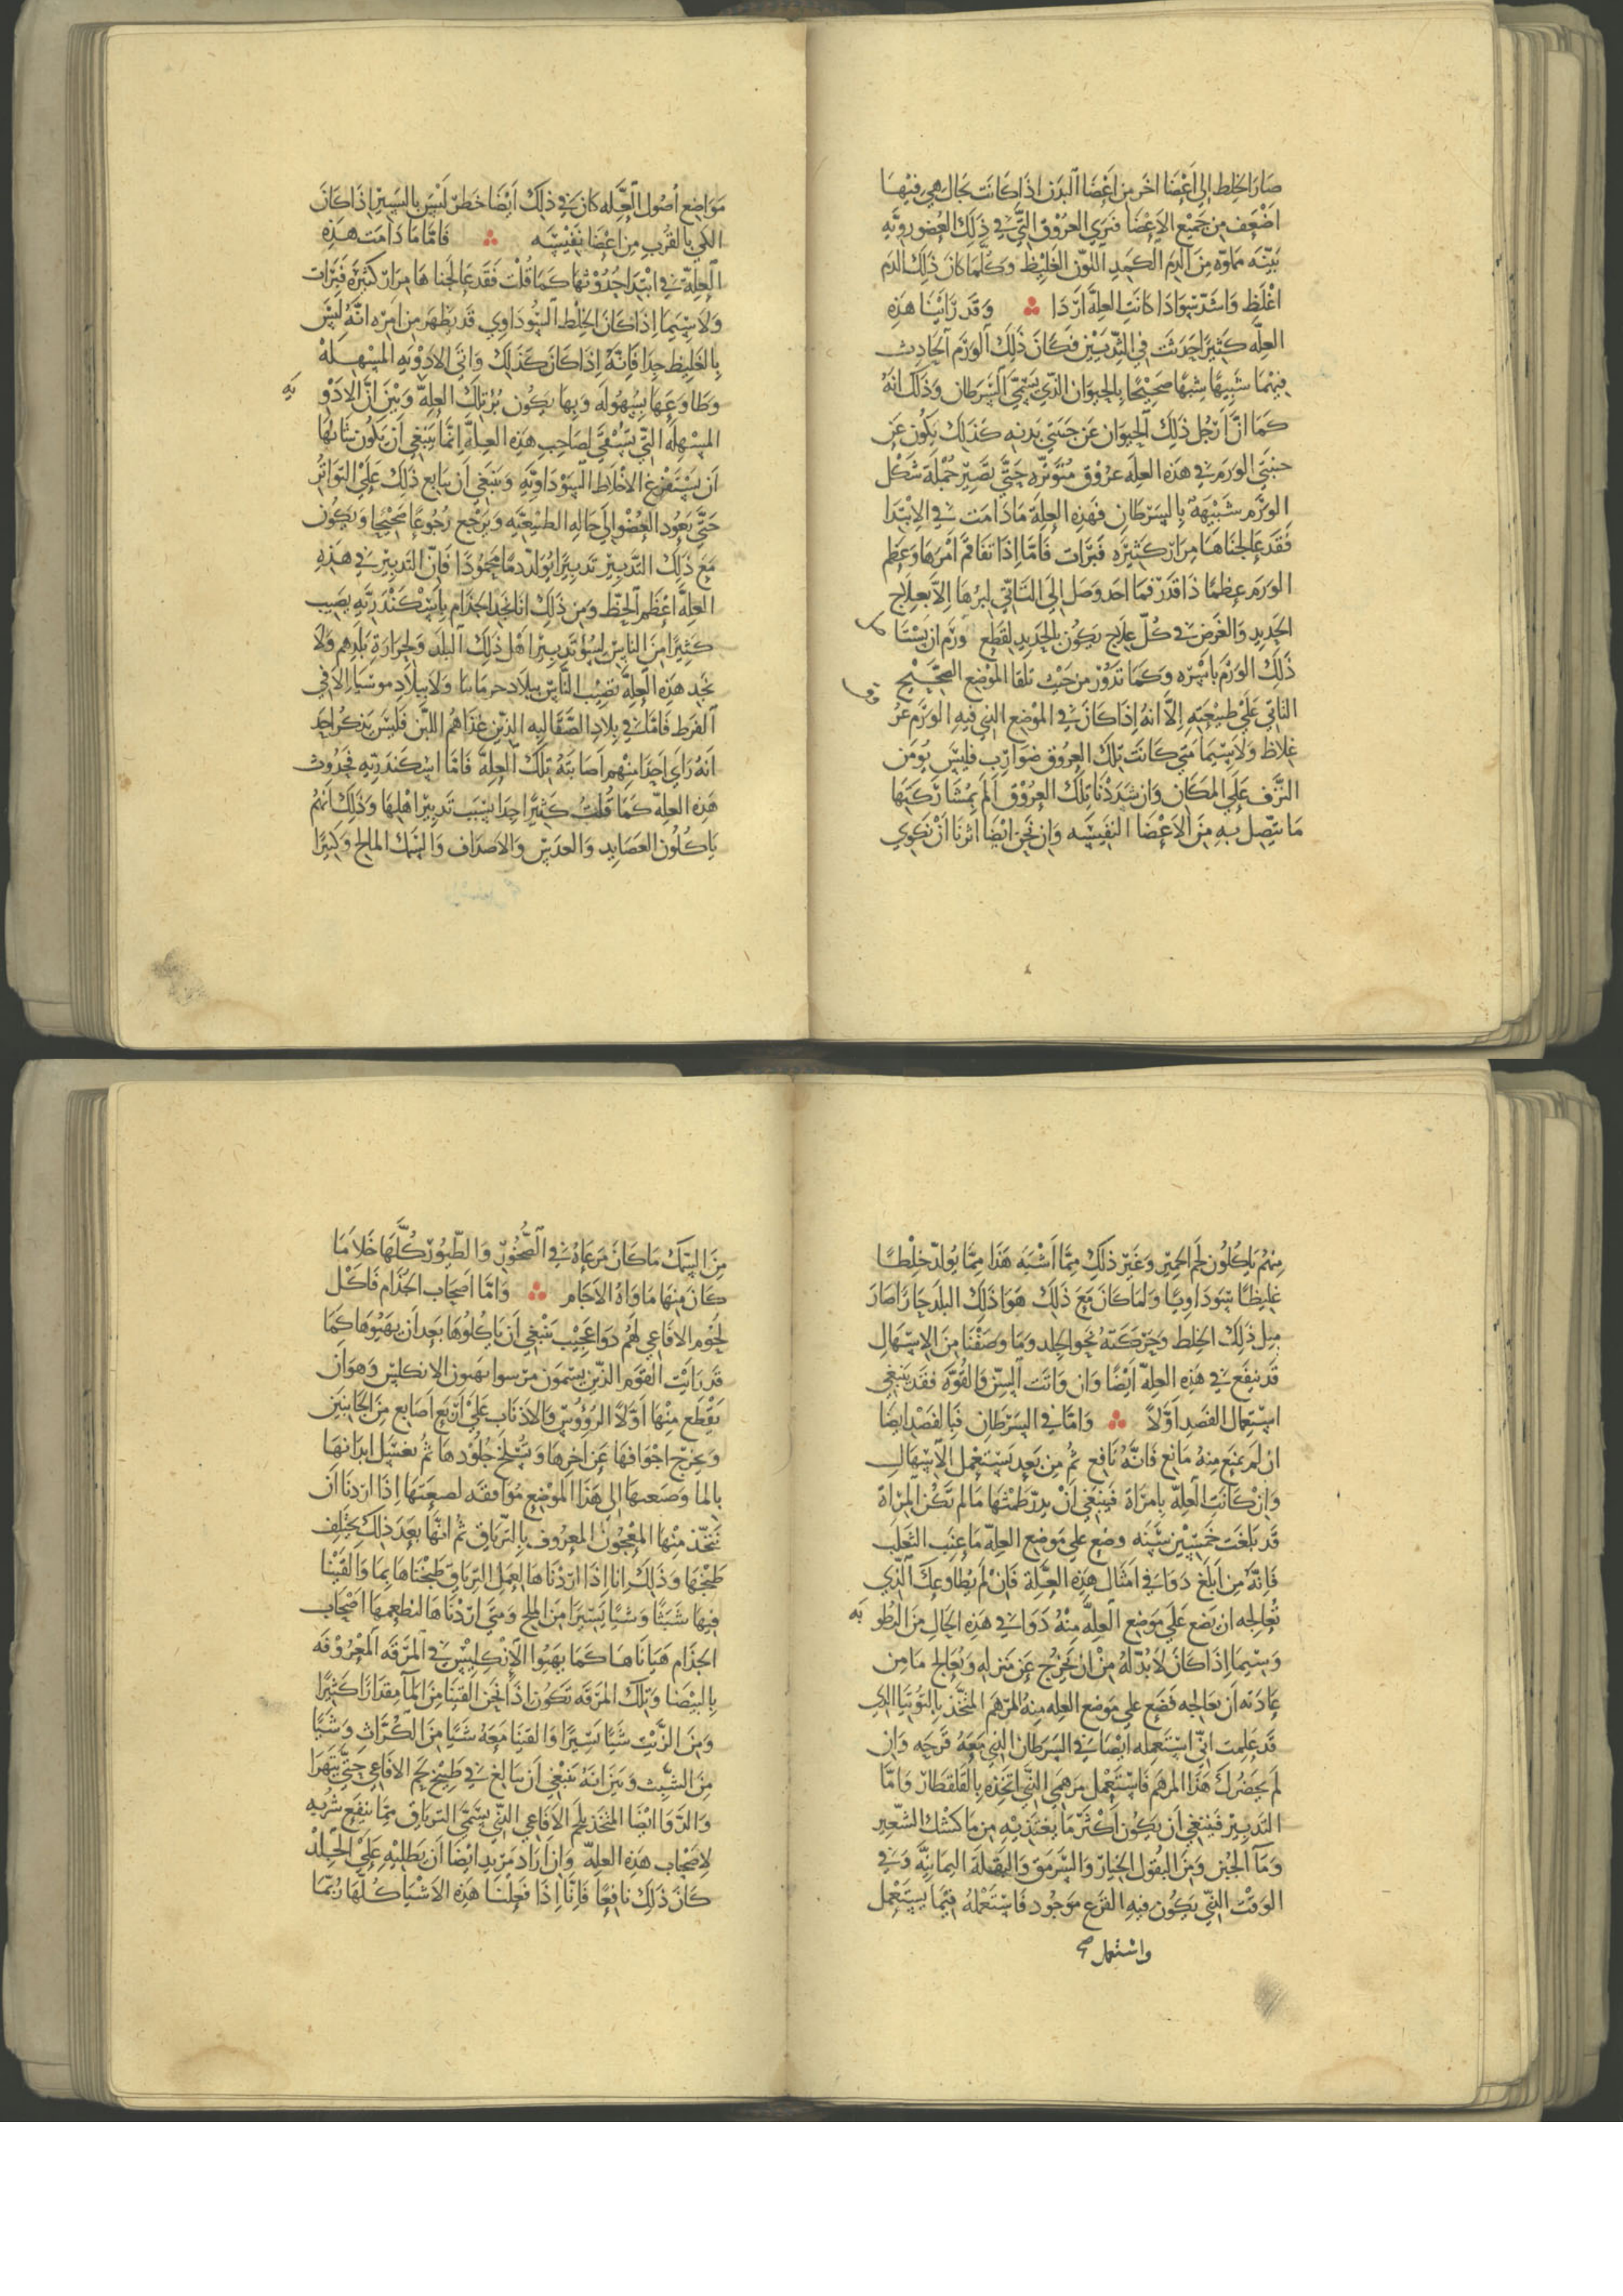 صَارَ الخِلط الى اَعْضَا اخَر مِن اَعْضَا البَدَن اذَا كانَت بحَال هي فيْهَا
اضْعَف من جَميْع الاَعْضَا فَتَرَي العرُوْق التّي في ذلِكَ العُضو رويَّه
بَيّنَه مملوّه مِنَ الدَم الكمِدِ اللوّن الغَليْظ وَكلّمَا كانَ ذلِكَ الدَم
اغْلَظ وَاشدّ سَوَادَا كانَتِ العِلةَ اَرْدَا وَقَد رَايْنَا هَذِهِ
العِلّه كثيرًا حَدَثت في الثّديَيْن فَكَانَ ذلِكَ الوَرَم الحَادِث
فيْهمَا شَبيْهًا شَبهًا صَحيْحًا بالحيوَان الذّي يُسَمّي السَّرطان وَذَلكَ انهُ
كمَا انَّ ارْجُل ذَلِكَ الحَيوَان عَن جَنبَتي بَدنِه كَذَلِكَ يكُون عَن
جنبتي الوَرَم في هَذه العِلّه عرُوْق مُتوَتّره حَتّي تَصيْر جُمْلَة شَكْل
الوَرَم شَبيْهَة بالسَرَطان فَهَذه العِلة مَادَامَت في الابْتدَا
فقَد عَالجنَاهَا مِرَارً كثيرَه فَبرَات فَامّا اِذَا تفَاقم امْرهَا وَعَظم
الوَرَم عِظمًا ذَا قدَر فمَا احَد وَصَل اِلَي التَاتّي لبُرهَا اِلاَّ بعلَاج
الحَديدِ وَالغَرض في كُلّ علَاج يَكُون بالحَديد لقَطع وَرَم ان يَسْتَا
صَل
ذَلِكَ الوَرَم باسْره وَكمَا تَدُوْر مِن حَيْث تلقَا المَوْضع الصَّحيْح
الباقي عَليْ طبيْعَتِه اِلاّ انهُ اِذَا كانَ في الموْضع الذي فيْهِ الوَرَم عرُ
وق
غلاظ وَلاَسِيّمَا مَتي كَانَت تلكَ العرُوْق ضَوَاربَ فليْس يُومَن
النّزْف عَلي المَكَان وَان شَدَدْنَا تلْكَ العرُوْق اَلَمَ بمُشَارَكتَهَا
مَا يتّصِل بهِ مِنَ الاَعْضَا النَفيْسَه وَان نحَنُ ايْضًا اثرنَا اَنْ نكوِي
مَوَاضِع اُصُول العِّلَه كانَ في ذَلِكَ اَيْضًا خَطرٌ ليْسَ باليَسيْر اِذَا كانَ
الكَي بالقُرب مِن اعْضَا نَفِيْسَه فَامّا مَا دَامَت هَذِهِ
العِلّة في ابتِدَا حُدُوْثهَا كمَا قُلْت فَقَد عَالجنَاهَا مِرَارً كثيْرَةً فَبَرَات
وَلاَسِيّمَا اِذَا كانَ الخِلط السّودَاوي قَد يَظهَر مِن امْرِه انّهُ ليْسَ
بالغَليظ جدًا فَانّهُ اِذَا كانَ كَذَلكَ وَاتي الاَدْويَه المسْهلةْ
وَطاوَعَهَا بسُهُولَه وَبهَا يكُون بُرْ تلكَ العِلةَّ وَبَيْنٌ انّ الاَدْو
يَه
المسْهِلَه التّي يُسْقي لصَاحِب هَذِه العِلةّ اِنّما يَنبَغي اَن يكُون شَانهَا
اَن يَسْتَفرغ الاَخلاَط السَوْدَاويّه وَيَنبَغي اَن يتَابَع ذَلكَ عَلَيْ التوَاتُر
حَتّي يَعُود العُضْو الي حَالهِ الطبيْعيّه وَيَرْجع رُجُوعًا صَحيْحًا وَيَكُون
مَعَ ذلِكَ التّدبيْر تدبيْرًا يُولّد دمًا محمُودًا فَانّ التّدبيْر في هَذِهِ
العِلّةَ اعْظَم الحَظّ وَمِن ذَلِكَ انَا نجدُ الجذَام باسْكَندَريّه يُصيب
كَثيْرًا مِنَ الناسْ لسُوءِ تَدبيْر اهْل ذلِكَ البلَد وَلحرَارَة بَلَدِهم وَلاَ
نجد هَذِه العِلّة تصيْب النّاسْ ببلاَد جرمَانيَا وَلاَ ببلاَدِ موسيَا اِلاَّ في
الفَرط فَامّا في بلاَدِ الصّقَالبه الذيْن غذَاهُم اللبَن فَليْسَ يَذكرُ احَد
انهُ رَاي احَدًا مِنْهم اصَابَتهُ تِلكَ العِلّة فَامّا اسْكندَريّه فحُدُوث
هَذِه العِلّه كمَا قُلتُ كثيرًا جِدًا بسَبَب تَدبيْر اهْلهَا وَذَلكَ انّهُم
يَاكلُون العَصَايد وَالعدَس وَالاَصدَاف وَالسّمَك المالح وَكثيْرًا
مِنهُم يَاكلُون لحم الحميْر وَغَيْر ذلِكَ مِمّا اَشْبَه هَذَا مِمّا يُولّد خلْطًا
غليظًا سَودَاويًا وَلمَا كَانَ مَعَ ذَلِكَ هَوَا ذَلِكَ البلَد حَارًا صَارَ
ميل ذَلِكَ الخِلط وَحرَكتَهُ نحوَ الجِلدِ وَمَا وَصَفْنَا مِنَ الاسْهَال
قَد ينفَع في هَذِه العِلّة اَيْضًا وَان وَاتَت السِّنّ وَالقُوّه فقَد يَنبَغي
اسْتعمَال الفَصدِ اوّلاً وَامّا في السَرَطان فبَالفَصْد ايْضَا
ان لَم يمنَع مِنهُ مَانع فَانّهُ نَافع ثُم مِن بَعد يَسْتَعْمِل الاَسْهَال
وَانْ كَانَت العِلّه بامرَاَة فَيَنبَغي اَنْ يدرّ طَمْثهَا مَا لم تكُن المرْاَة
قَد بَلغَت خمَسِيْن سَنَه وضع علي مَوضع العِلّه مَا عِنَب الثعلَب
فَانّهُ مِن اَبلَغ دَوَا في امثَال هَذِه العِلَّة فَانْ لم يُطاوعكَ الّذي
تُعالِجه ان يَضع عَلي مَوضع العِلّه مِنْهُ دَوا في هَذِه الحَالِ مِنَ الرطو
بَه
وَسيّما اِذَا كانَ لاَ بُدّ لهُ مِنْ انْ يخرُج عَن مَنزِلهِ وَيُعَالج مَا مِن
عَادَته ان يعَالجه فَضع علي مَوضع العِله مِنهُ المرهَم المتّخَذ بالتُوتيَا الذي
قَد عَلمت انّي اسْتَعمله ايْضا في السَرَطان الذي مَعهُ قَرحَه وَان
لَم يحضُركَ هَذَا المرهَم فَاسْتَعْمل مَرهَمي الذّي اتّخذه بالقَلقَطار وَامّا
التّدبيْر فَيَنبَغي اَن يَكُون اَكْثَر مَا يغتذيْه مِن مَا كشك الشّعِير
وَمَا الجُبن وَمِنَ البقُول الخيَار وَالسَّرمَق وَالبَقلَة اليمَانيّه وَفي
الوَقْت الذّي يكُون فيهِ القَرع مَوجُود فَاسْتَعْملهُ فيْمَا يسْتَعْمل
واستعمل
مِنَ السّمَك مَا كانَ مَرعَاهُ في الصُّخُوْر وَالطّيُوْر كُلّهَا خَلاَ مَا
كانَ مِنهَا مَاوَاهُ الاَجَام وَامّا اصْحَاب الجُذَام فَاكْل
لحُوْم الاَفَاعي لَهُم دَوَا عَجيْب يَنبَغي اَن يَاكلُوهَا بَعدَ اَن يهَيّوهَا كمَا
قَد رَايْت القَوْم الذّين يُسَمّوْن مرسوا يهيون الانكليْس وَهوَ اَن
يَقْطع مِنْهَا اَوّلاً الرّؤُوسْ وَالاَذنَاب عَليْ اَرْبع اَصَابع مِنَ الجَانبَيْن
وَيخرَج اجْوافهَا عَن اخرهَا وَتُسْلخ جُلُوْدهَا ثُمّ يغسَل ابدَانهَا
بالما وَصنعتهَا الي هَذَا الموْضع مُوَافقَه لصنعَتهَا اِذَا ارَدنَا اَن
نَتّخذ مِنْهَا المعْجُون المعرُوف بالتّريَاق ثُم انّهَا بَعدَ ذلكَ يختلِف
طبْخهَا وَذَلِكَ انا اِذَا اردْنَاهَا لعمَل الترياق طبَخنَاهَا بمَا وَالقَيْنا
فيهَا شَبَثًا وَشيًا يَسيْرًا مِنَ المِلح وَمَتي ارَدْنَاهَا لنطعِمهَا اَصْحَاب
الجذَام هَيانَاهَا كمَا يهَيّوا الاَنكليْس في المَرَقه المَعْرُوْفَه
بالبيْضَا وَتلكَ المَرَقه تَكُون اذَا نحنُ القينَا مِنَ الما مِقدَارًا كثيْرًا
وَمِنَ الزّيْت شيًا يَسيْرًا وَالقينَا مَعَهُ شيًا مِنَ الكُرّاثِ وَشيًا
مِنَ الشّبِث وَبَيّن انّهُ يَنبَغي اَن يبَالغ في طبْخ لحم الاَفَاعي حَتّي يَتهرَا
وَالدّوَا ايْضَا المتخذ بلحم الاَفَاعي الذّي يُسَمّي الترياق مِمّا ينفَع شربه
لاَصْحَاب هَذِه العِلّه وَان اَرَادَ مَريد ايْضَا اَن يَطليْه عَلَيْ الجِلدْ
كانَ ذَلكَ نافِعًا فَانّا اِذَا فعلْنَا هَذِه الاَشْيَا كُلّهَا رُبّمَا